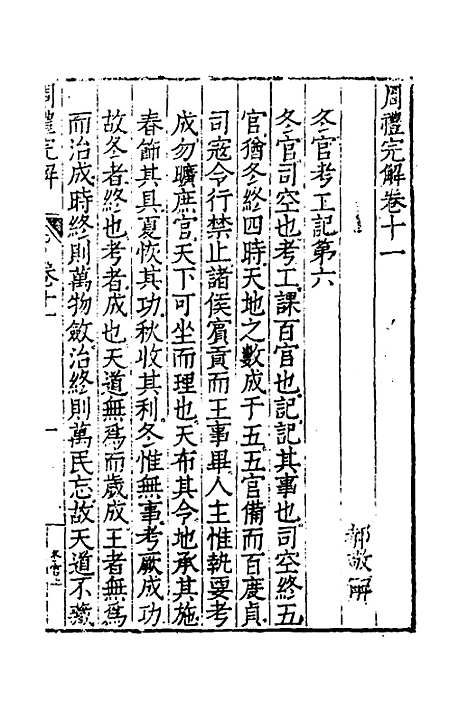 周禮完解卷十一
郝敬解
冬官考工記第六
冬官司空也考工課百官也記記其事也司空終五
官猶冬終四時天地之數成于五五官備而百度貞
司寇令行禁止諸侯賓貢而王事畢人主惟執要考
成勿曠庶官天下可坐而理也天布其令地承其施
春飾其具夏恢其功秋收其利冬惟無事考厥成功
故冬者終也考者成也天道無爲而歲成王者無爲
而治成時終則萬物斂治終則萬民忘故天道不藏
周禮完解
卷十一
一